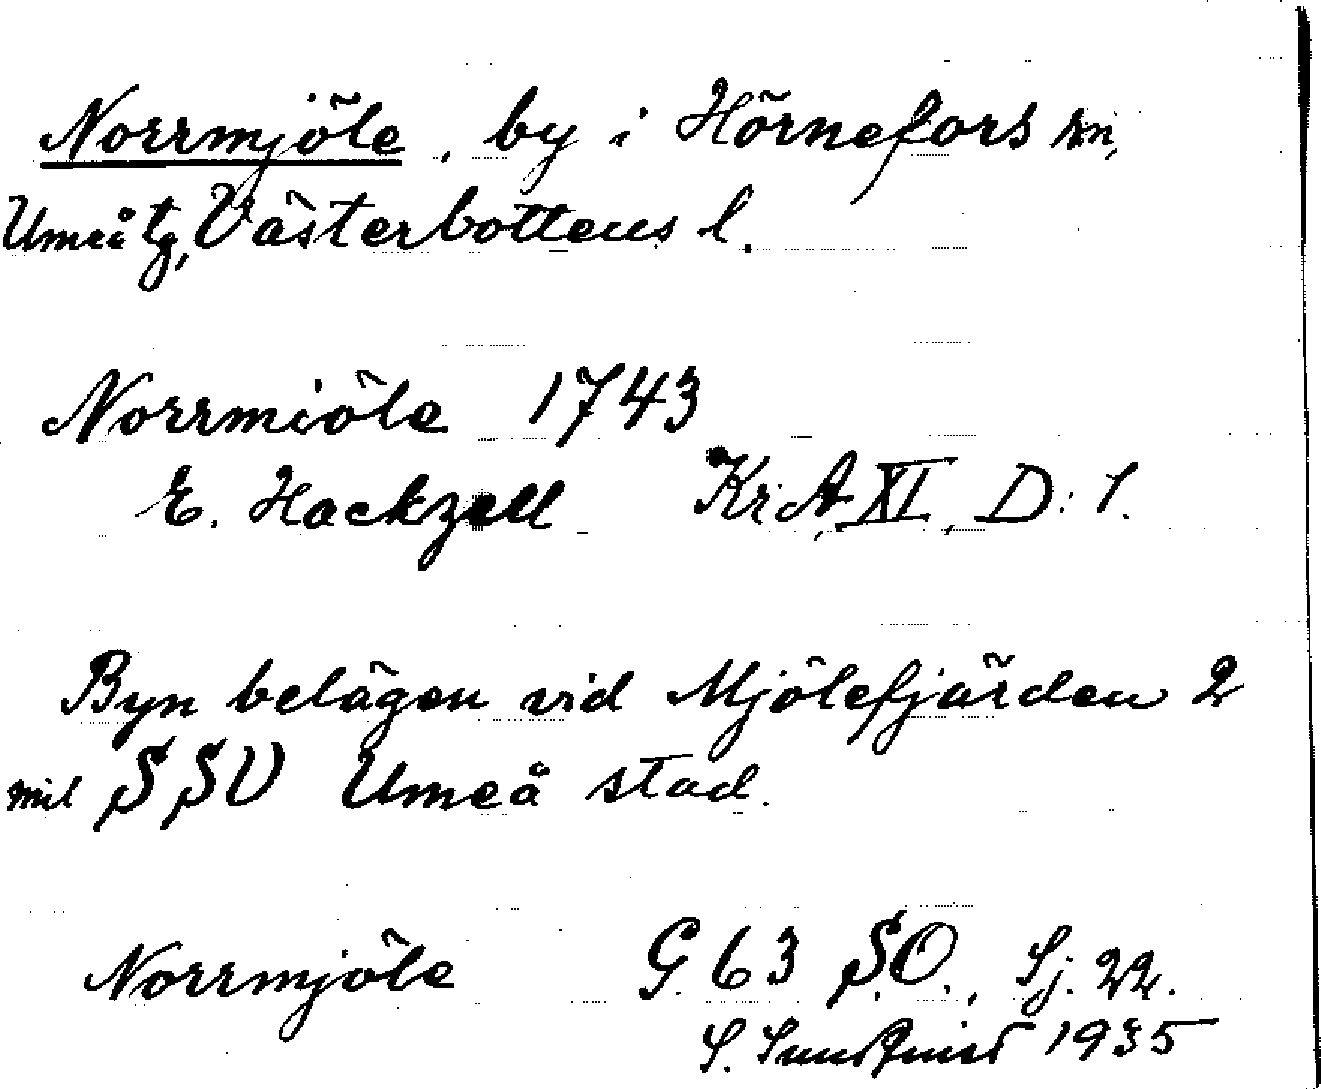 Norrmjöle, by i Hörnefors sn,
Umeå tg, Västerbottens l.
Norrmiöle 1743
E. Hackzell KrA, XI, D: 1.
Byn belägen vid Mjölefjärden 2
mil SSV Umeå stad.
Norrmjöle G 63 S.O., Sj. 22.
S. Sundqvist 1935